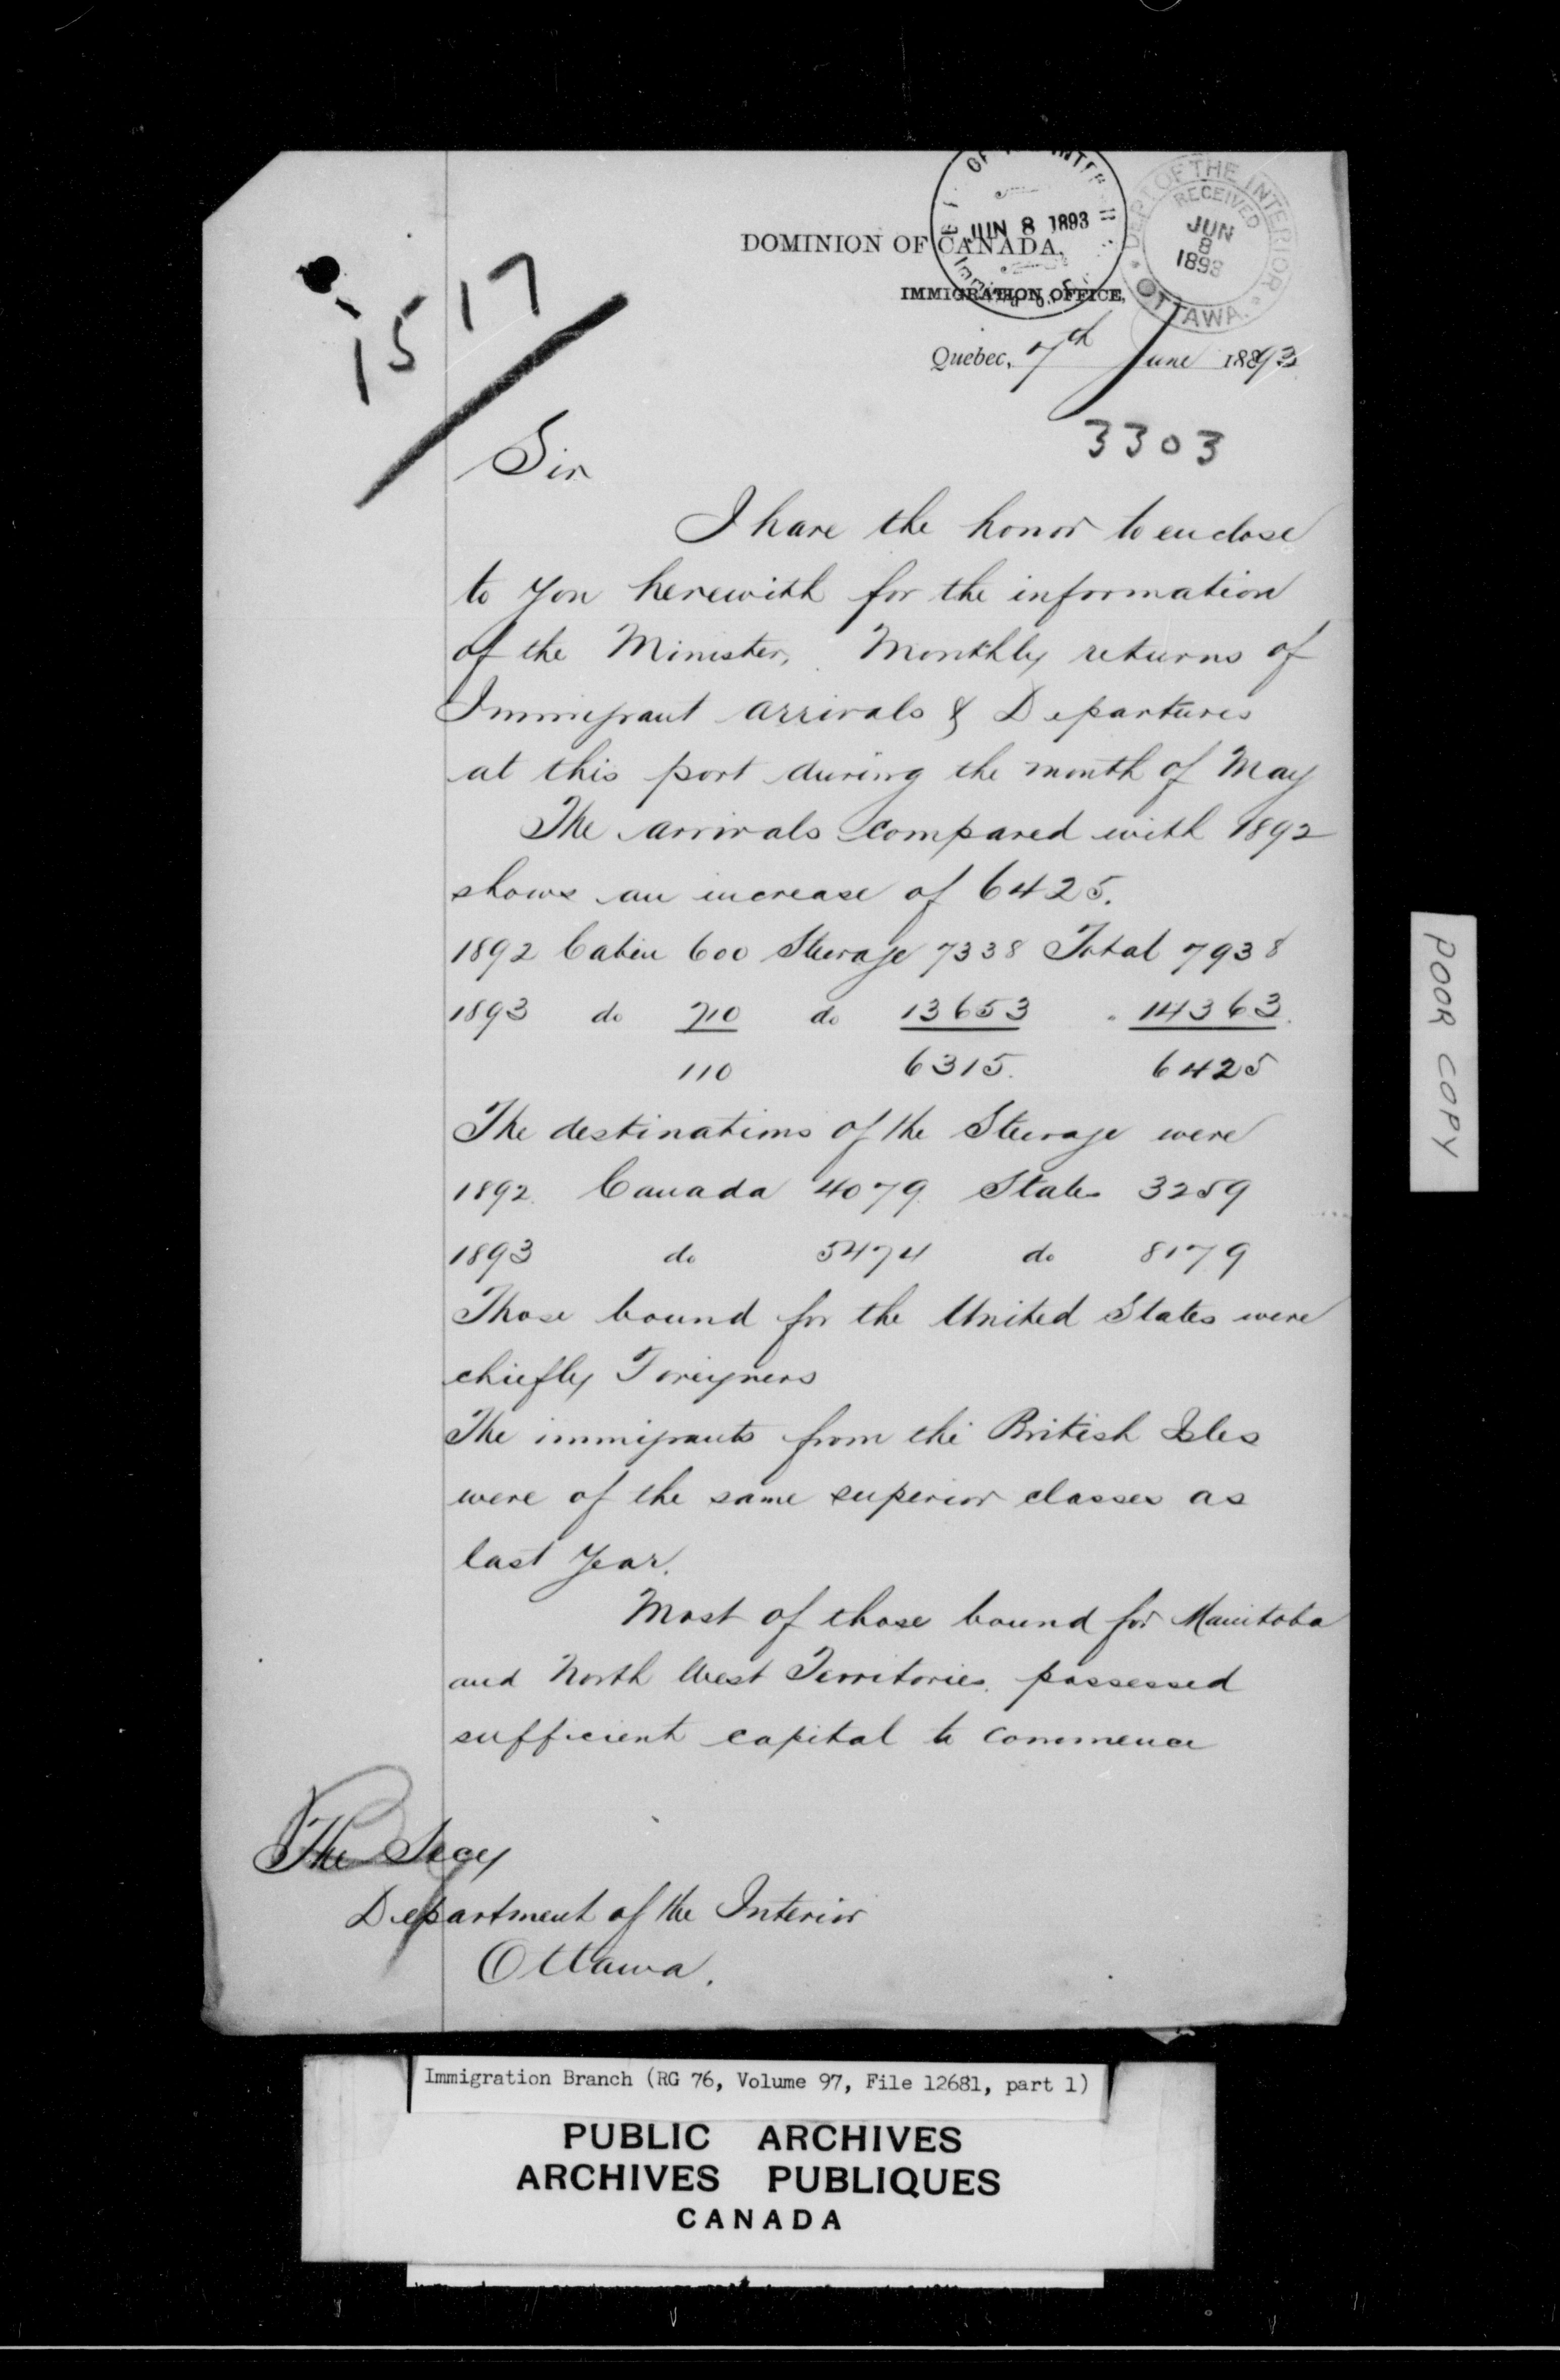 JUN 8 1893
DEPT OF THE INTERIOR
RECEIVED
JUN
8
1893
OTTAWA.
DOMINION OF CANADA,
IMMIGRATION OFFICE,
Quebec, 7th June 1893
1517
3303
Sir
I have the honor to enclose
to you herewith for the information
of the Minister, Monthly returns of
Immigrant arrivals & Departures
at this port during the month of May
The arrivals compared with 1892
shows an increase of 6425.
1892 Cabin 600 Steerage 7338 Total 7938
1893 do 710 do 13653 " 14363.
110 6315. 6425
The destinations of the Steerage were
1892 Canada 4079 States 3259
1893 do 5474 do 8179
Those bound for the United States were
chiefly Foreigners
The immigrants from the British Isles
were of the same superior classes as
last Year.
Most of those bound for Manitoba
and North West Territories possessed
sufficient capital to commence
The Secy
Department of the Interior
Ottawa.
POOR COPY
Immigration Branch (RG 76, Volume 97, File 12681, part 1)
PUBLIC ARCHIVES
ARCHIVES PUBLIQUES
CANADA